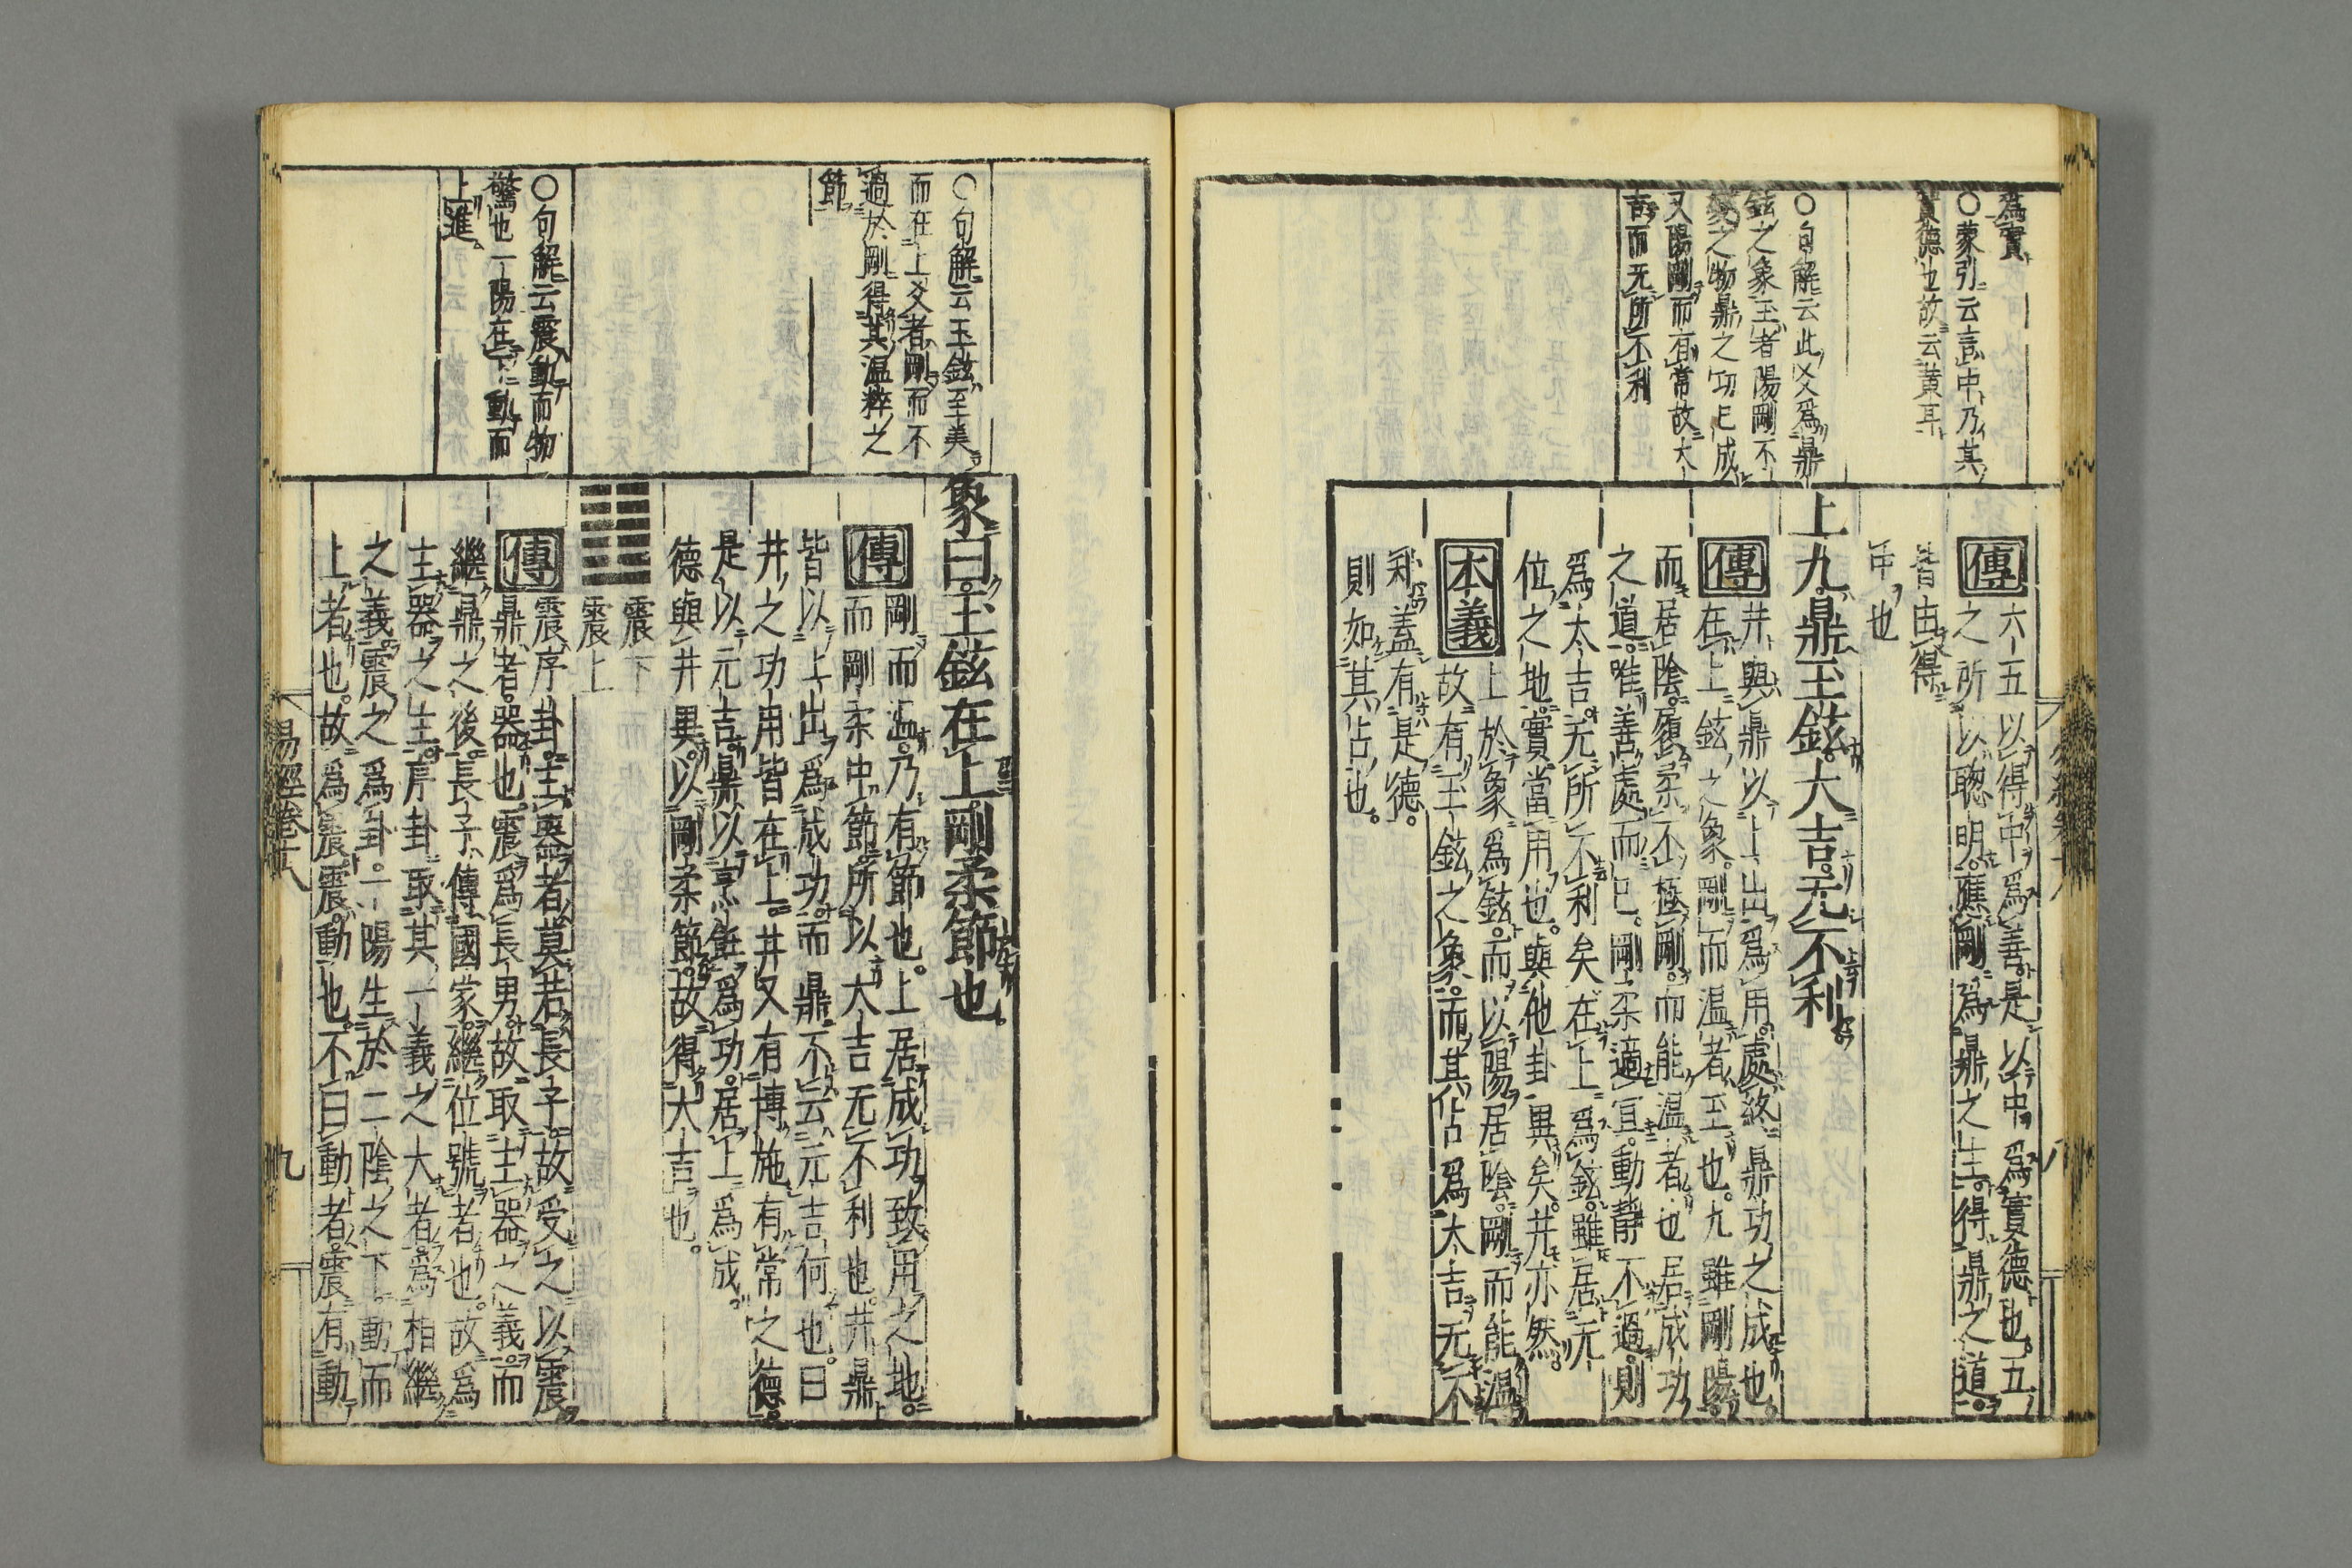 爲實
○蒙引云言中乃其
實德也故云黃耳
○句解云此爻爲鼎
鉉之象玉者陽剛不
變之物鼎之功已成
又陽剛而有常故大
吉而无所不利
傳六五以得中爲善是以中爲實德也五
之所以聰明應剛爲鼎之主得鼎之道
皆由得
中也
上九鼎玉鉉大吉无不利
傳井與鼎以上出爲用處終鼎功之成也
在上鉉之象剛而溫者玉也九雖剛陽
而居陰履柔不極剛而能溫者也居成功
之道唯善處而已剛柔適宜動靜不過則
爲大吉无所不利矣在上爲鉉雖居无
位之地實當用也與他卦異矣井亦然
本義上於象爲鉉而以陽居陰剛而能溫
故有玉鉉之象而其占爲大吉无不
利蓋有是德
則如其占也
○句解云玉鉉至美
而在上爻者剛而不
過於剛得其溫粹之
節
○句解云震動而物
驚也一陽在下動而
上進
象曰玉鉉在上剛柔節也
傳剛而溫乃有節也上居成功致用之地
而剛柔中節所以大吉无不利也井鼎
皆以上出爲成功而鼎不云元吉何也曰
井之功用皆在上井又有博施有常之德
是以元吉鼎以烹飪爲功居上爲成
德與井異以剛柔節故得大吉也
震下
震上
傳震序卦主器者莫若長子故受之以震
鼎者器也震爲長男故取主器之義而
繼鼎之後長子傳國家繼位號者也故爲
主器之主序卦取其一義之大者爲相繼
之義震之爲卦一陽生於二陰之下動而
上者也故爲震震動也不曰動者震有動
易經卷十八
九